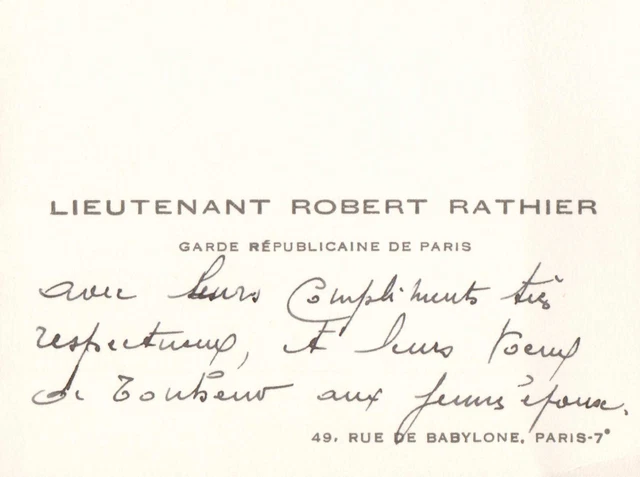 LIEUTENANT ROBERT RATHIER
GARDE RÉPUBLICAINE DE PARIS
avec leurs Compliments très
respectueux, Et leurs voeux
de bonheur aux jeunes époux.
49, RUE DE BABYLONE, PARIS-7e